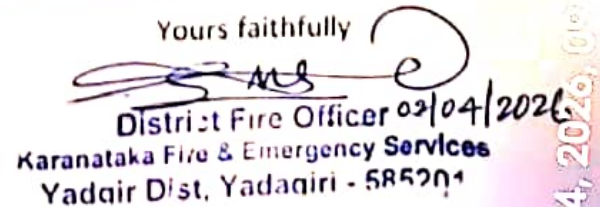 Yours faithfully
District Fire Officer 02/04/2026
Karanataka Fire & Emergency Services
Yadgir Dist, Yadagiri - 585201
4, 2026, 0